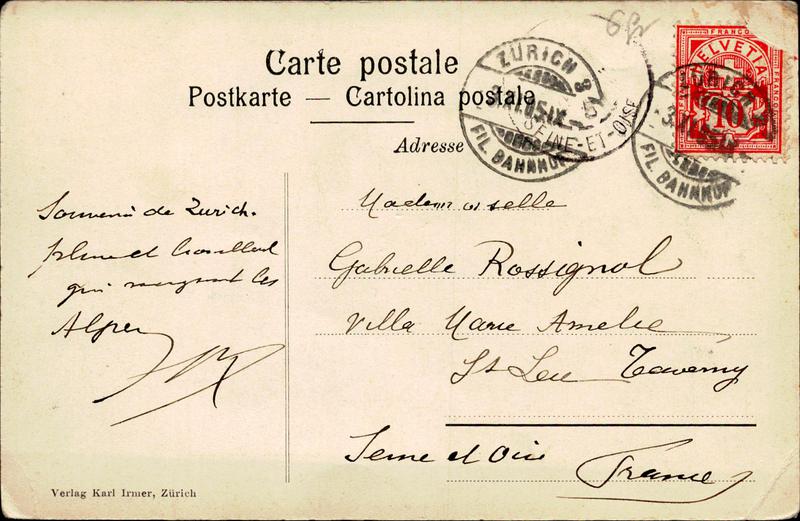 Carte postale
Postkarte — Cartolina postale
Adresse
ZÜRICH 3
FIL. BAHNHOF
SEINE-ET-OISE
FRANCO
HELVETIA
10
FIL. BAHNHOF
Souvenir de Zurich.
pluie et brouillard
qui masquent les
Alpes
Mademoiselle
Gabrielle Rossignol
Villa Marie Amelie
St Leu Taverny
Seine et Oise
France
Verlag Karl Irmer, Zürich